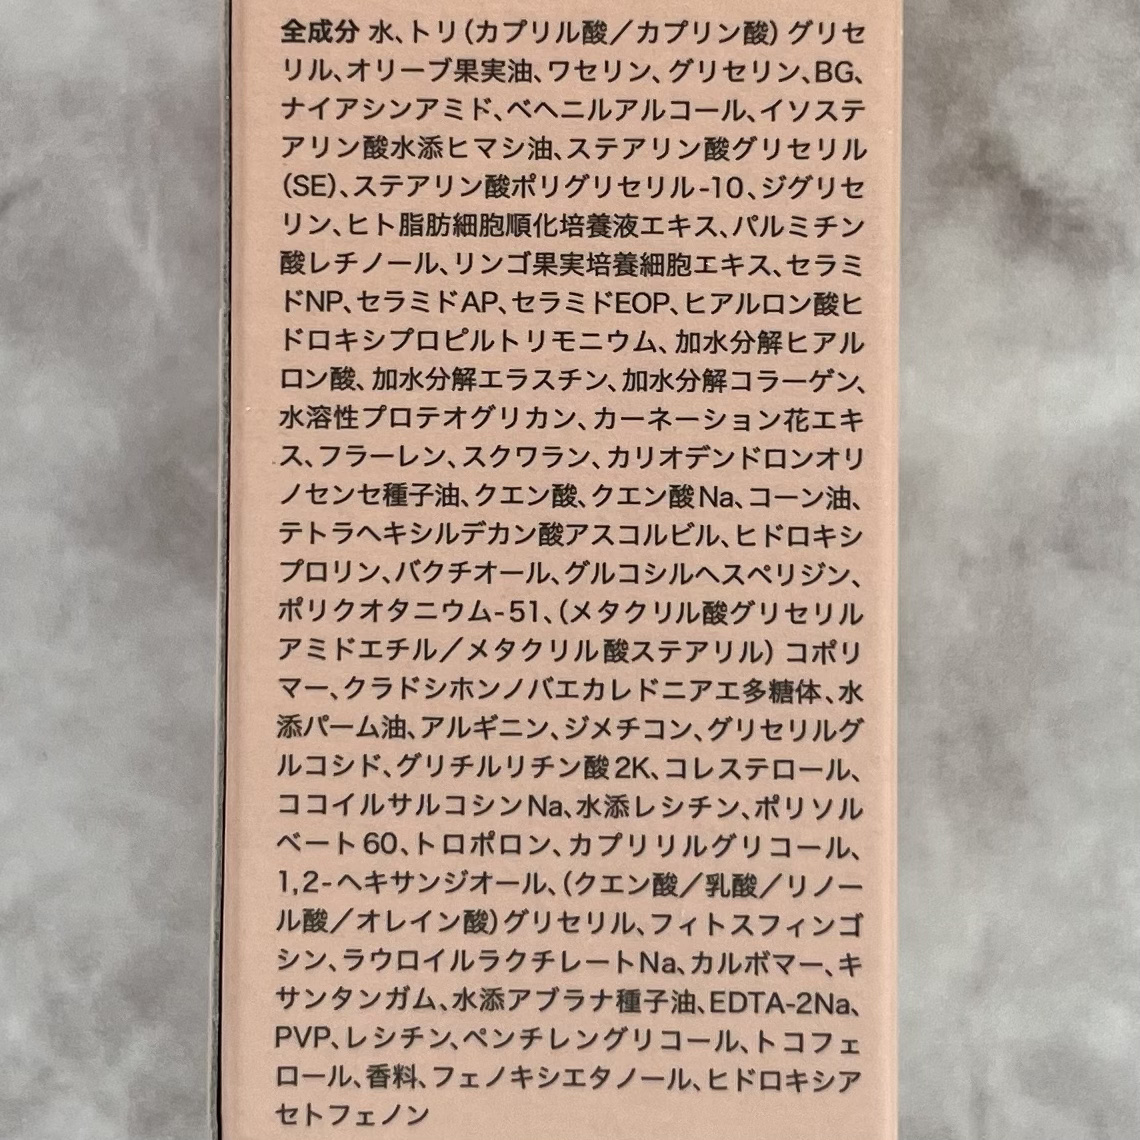 全成分 水、トリ(カプリル酸／カプリン酸) グリセ
リル、オリーブ果実油、ワセリン、グリセリン、BG、
ナイアシンアミド、ベヘニルアルコール、イソステ
アリン酸水添ヒマシ油、ステアリン酸グリセリル
(SE)、ステアリン酸ポリグリセリル-10、ジグリセ
リン、ヒト脂肪細胞順化培養液エキス、パルミチン
酸レチノール、リンゴ果実培養細胞エキス、セラミ
ドNP、セラミドAP、セラミドEOP、ヒアルロン酸ヒ
ドロキシプロピルトリモニウム、加水分解ヒアル
ロン酸、加水分解エラスチン、加水分解コラーゲン、
水溶性プロテオグリカン、カーネーション花エキ
ス、フラーレン、スクワラン、カリオデンドロンオリ
ノセンセ種子油、クエン酸、クエン酸Na、コーン油、
テトラヘキシルデカン酸アスコルビル、ヒドロキシ
プロリン、バクチオール、グルコシルヘスペリジン、
ポリクオタニウム-51、(メタクリル酸グリセリル
アミドエチル／メタクリル酸ステアリル) コポリ
マー、クラドシホンノバエカレドニアエ多糖体、水
添パーム油、アルギニン、ジメチコン、グリセリルグ
ルコシド、グリチルリチン酸2K、コレステロール、
ココイルサルコシンNa、水添レシチン、ポリソル
ベート60、トロポロン、カプリリルグリコール、
1,2-ヘキサンジオール、(クエン酸／乳酸／リノー
ル酸／オレイン酸)グリセリル、フィトスフィンゴ
シン、ラウロイルラクチレートNa、カルボマー、キ
サンタンガム、水添アブラナ種子油、EDTA-2Na、
PVP、レシチン、ペンチレングリコール、トコフェ
ロール、香料、フェノキシエタノール、ヒドロキシア
セトフェノン